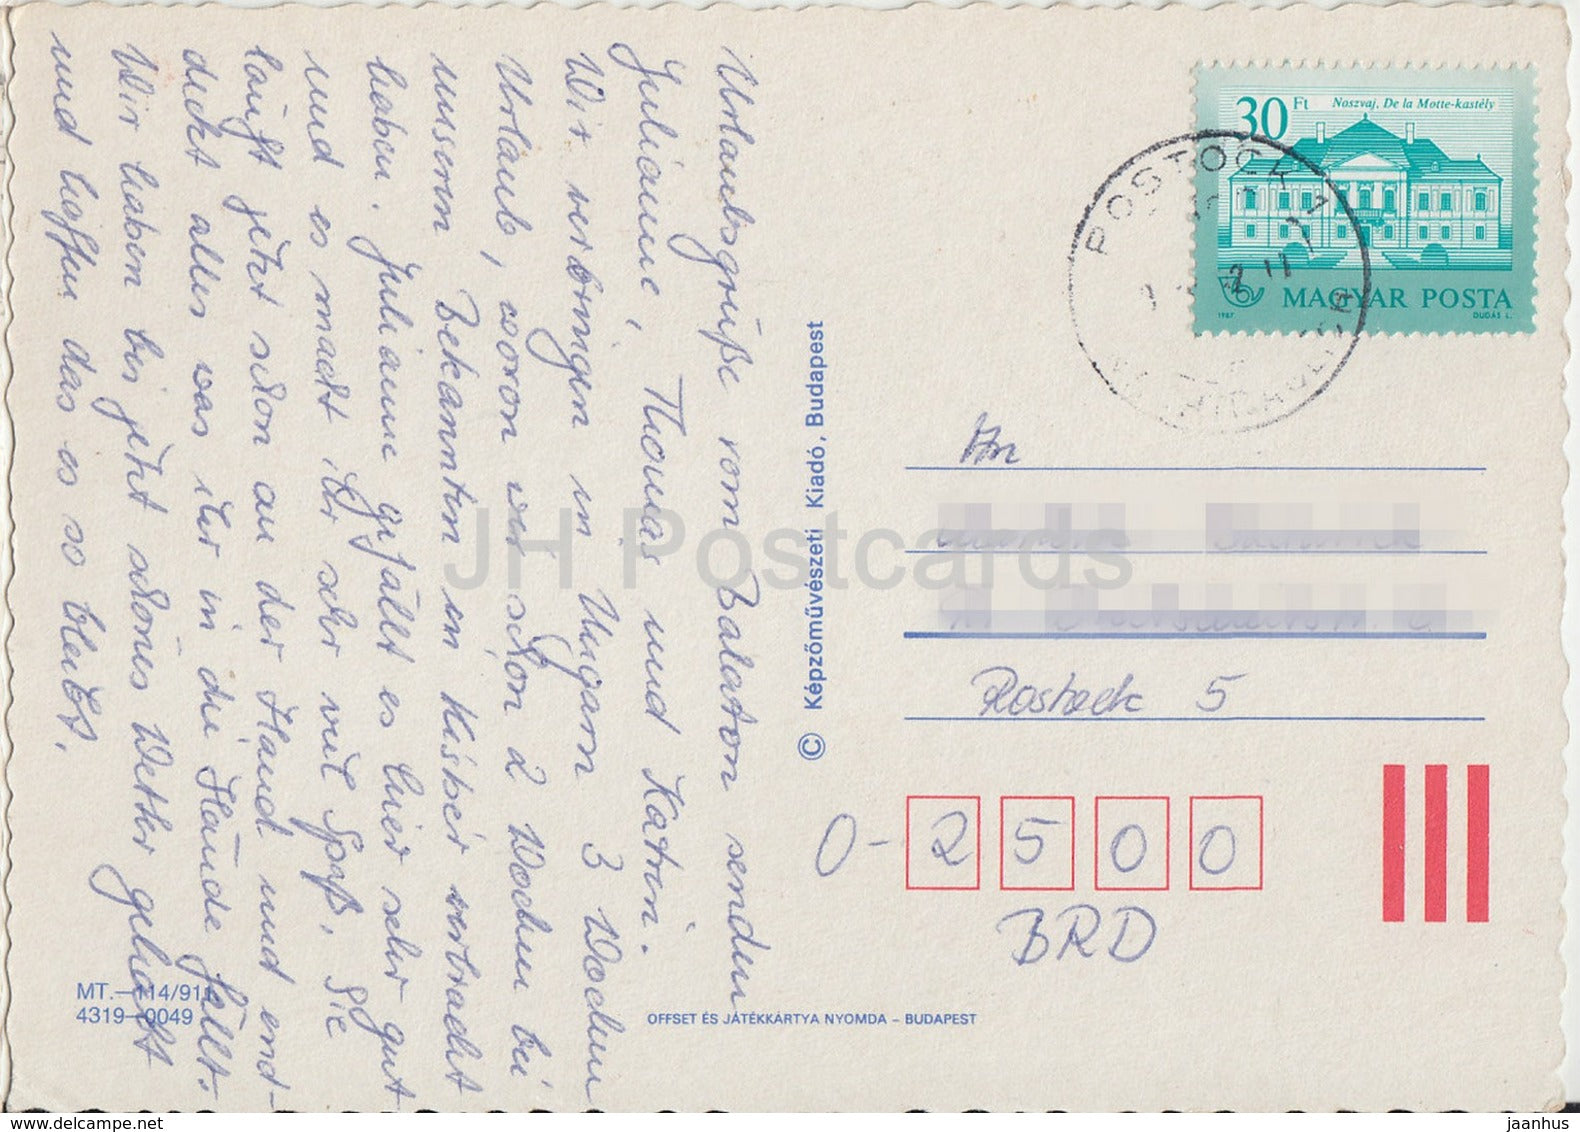 Urlaubsgrüße vom Balaton senden
Juliane, Thomas und Katrin.
Wir verbringen in Ungarn 3 Wochen
Urlaub, wovon wir schon 2 Wochen bei
unseren Bekannten in Kisbér verbracht
haben. Juliane gefällt es hier sehr gut
und es macht ihr sehr viel Spaß. Sie
läuft jetzt schon an der Hand und end-
dickt alles was ihr in die Hände fällt.
Wir haben bis jetzt schönes Wetter gehabt
und hoffen das es so bleibt.
MT.—114/911
4319—0049
© Képzőművészeti Kiadó, Budapest
OFFSET ÉS JÁTÉKKÁRTYA NYOMDA – BUDAPEST
30 Ft Noszvaj. De la Motte-kastély
MAGYAR POSTA
1987 DUDÁS L.
An
Rostock 5
O- 2 5 0 0
BRD
JH Postcards
delcampe.net
jaanhus